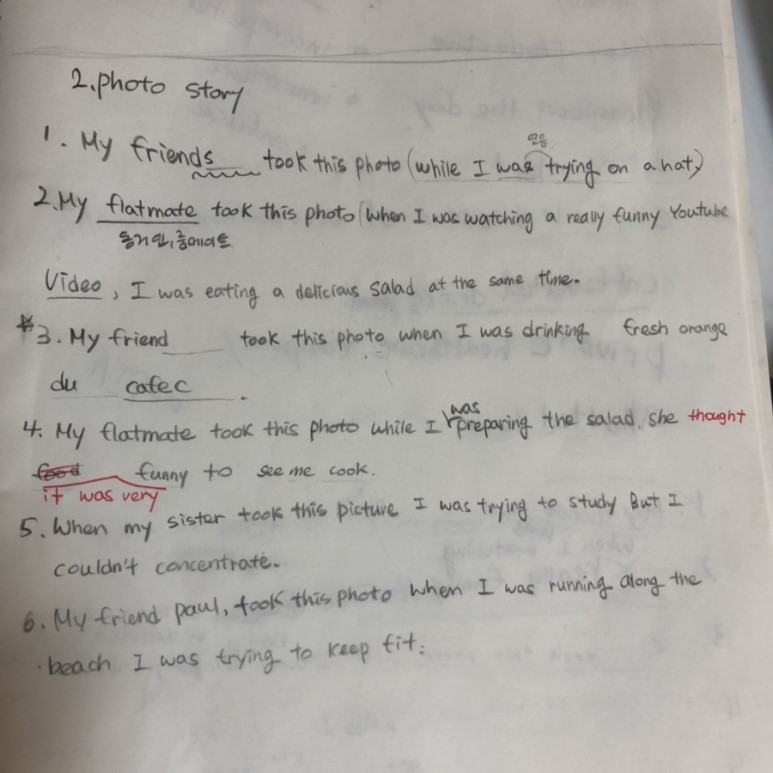 2. photo story
연음
1. My friends ___ took this photo (while I was trying on a hat)
2. My flatmate took this photo (when I was watching a really funny Youtube
동거인, 룸메이트
Video, I was eating a delicious salad at the same time.
*3. My friend ___ took this photo when I was drinking fresh orange
du cafec.
4. My flatmate took this photo while I was preparing the salad. she thought
food funny to see me cook.
it was very
5. When my sister took this picture I was trying to study But I
couldn't concentrate.
6. My friend paul, took this photo when I was running along the
beach I was trying to keep fit.